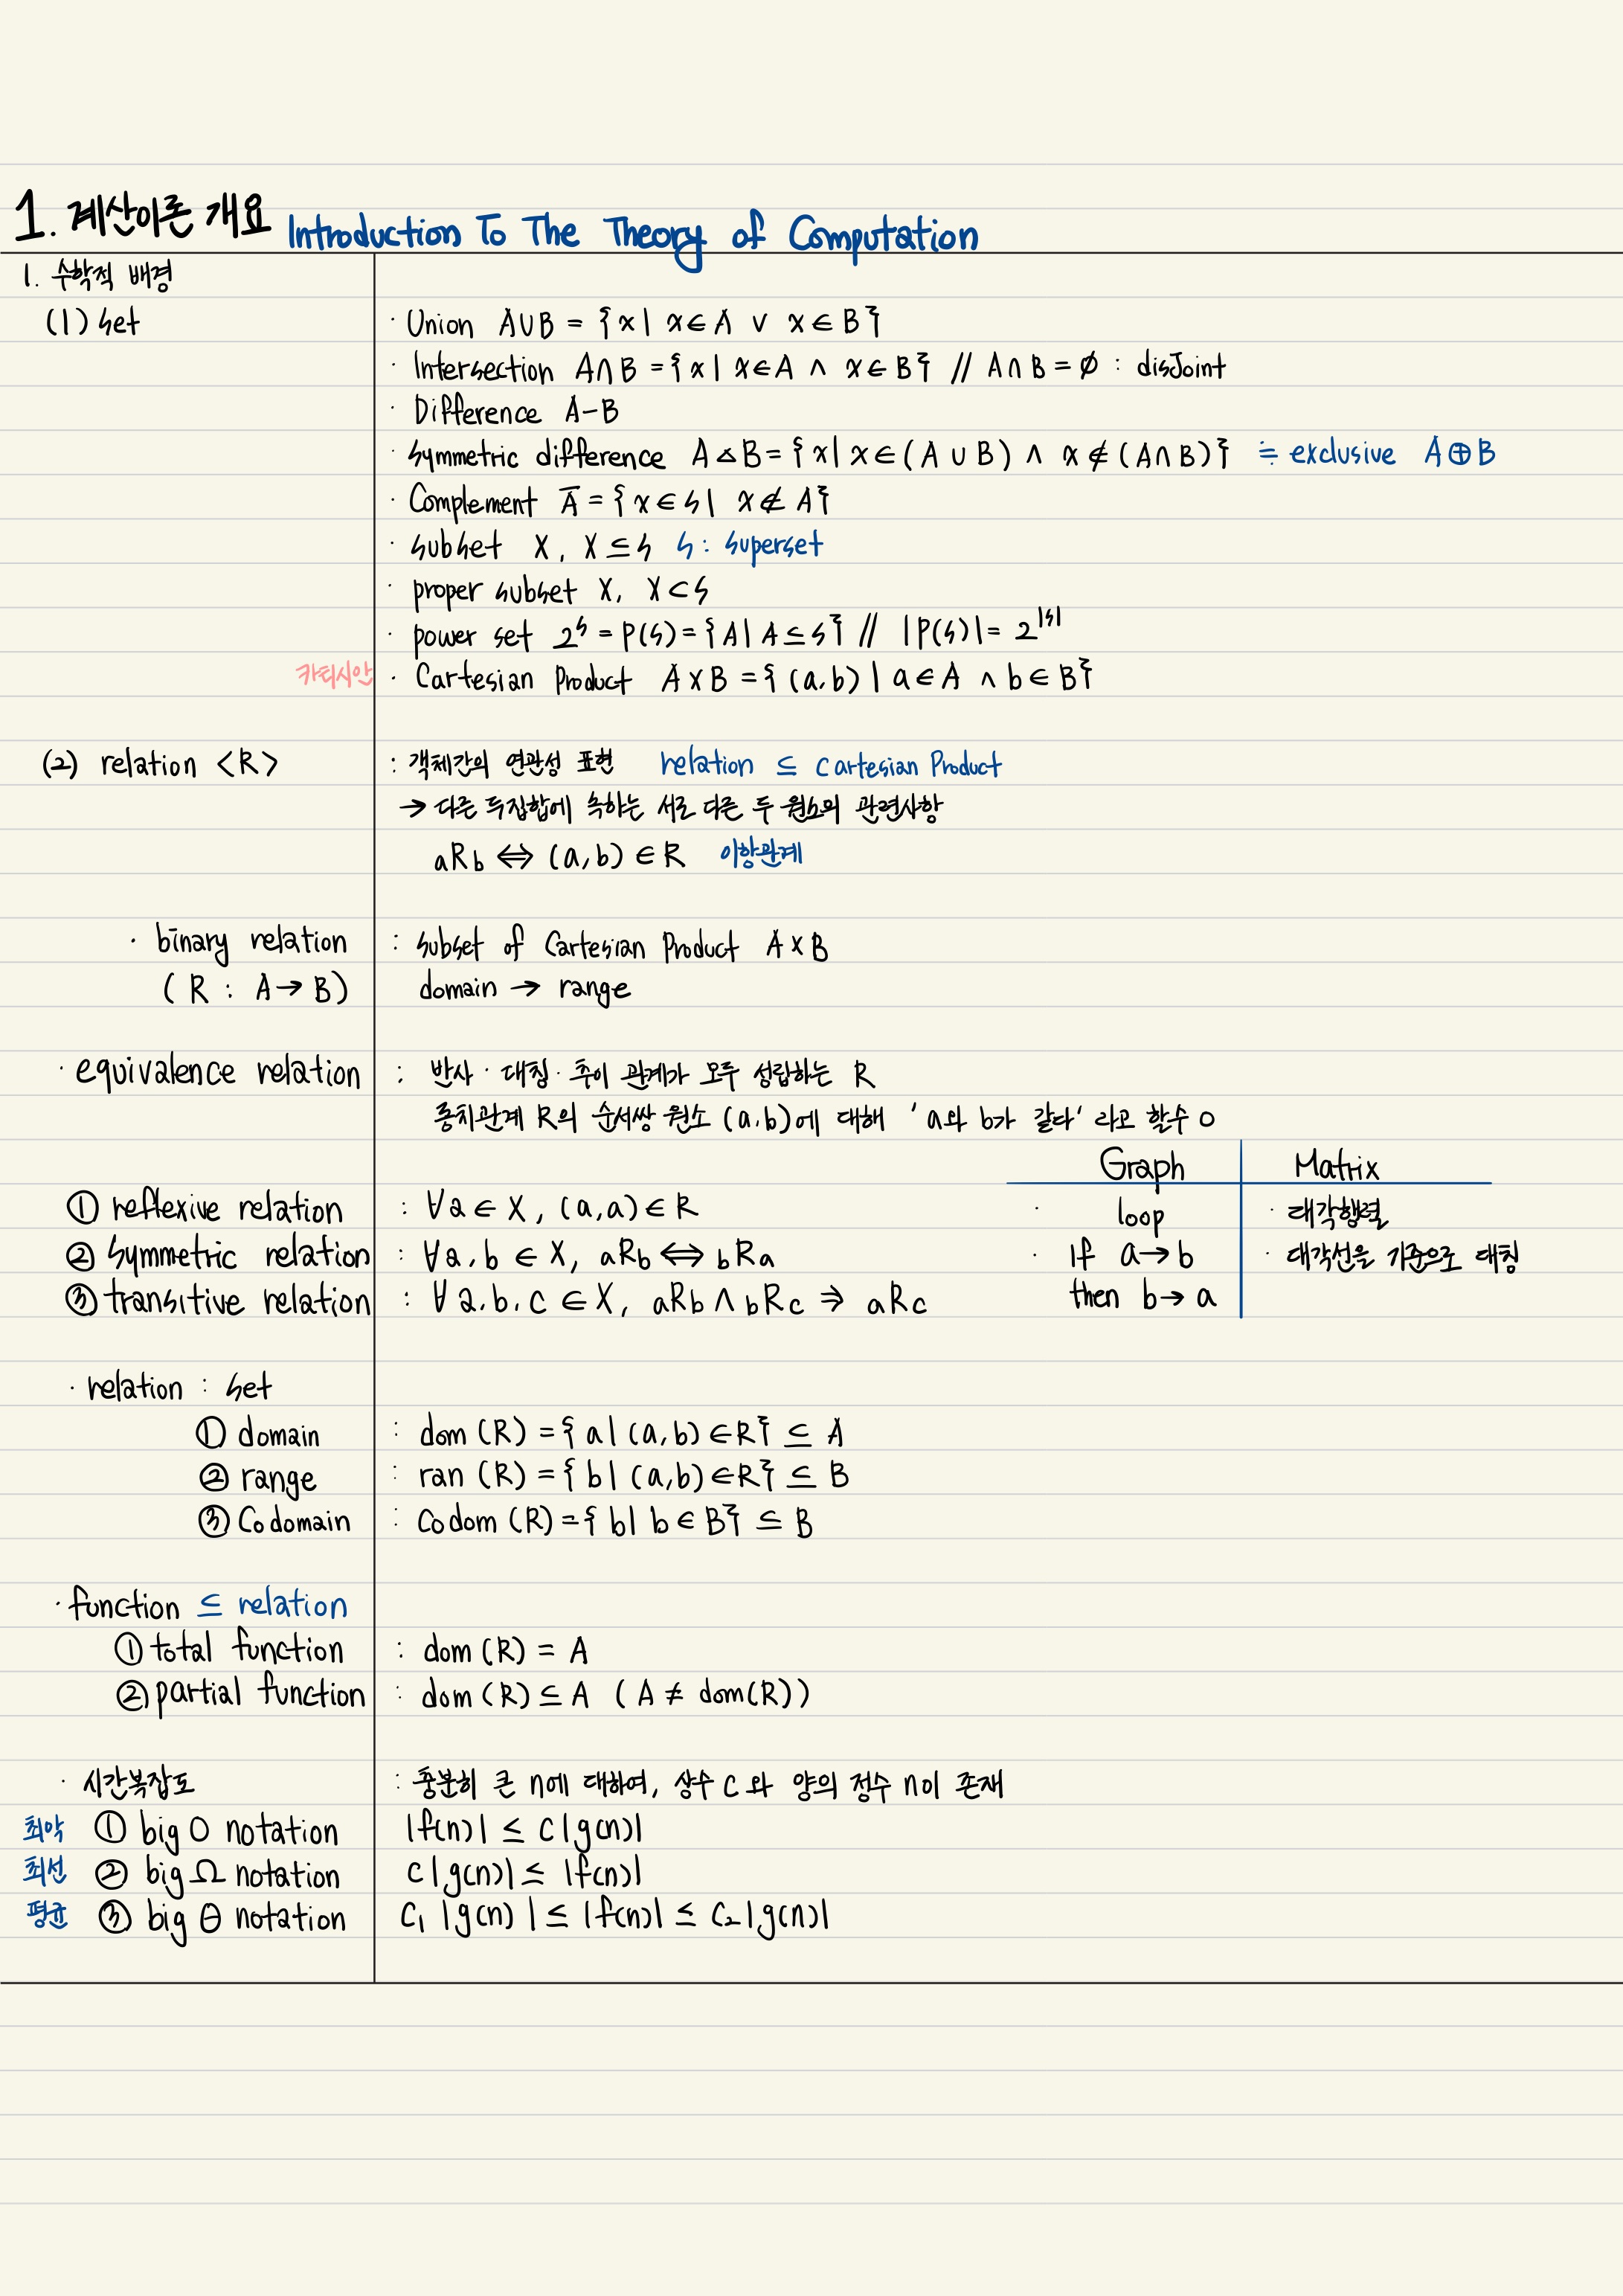 1. 계산이론 개요 Introduction To The Theory of Computation
1. 수학적 배경
(1) set · Union A∪B = {x | x∈A ∨ x∈B}
· Intersection A∩B = {x | x∈A ∧ x∈B} // A∩B = ∅ : disJoint
· Difference A-B
· Symmetric difference A△B = {x | x∈(A∪B) ∧ x∉(A∩B)} ≒ exclusive A⊕B
· Complement A̅ = {x∈S | x∉A}
· subset X, X⊆S S: superset
· proper subset X, X⊂S
· power set 2^S = P(S) = {A | A⊆S} // |P(S)| = 2^|S|
카티시안 · Cartesian Product A×B = {(a,b) | a∈A ∧ b∈B}
(2) relation <R> : 객체간의 연관성 표현 relation ⊆ Cartesian Product
→ 다른 두집합에 속하는 서로 다른 두 원소의 관련사항
aRb ⇔ (a,b) ∈ R 이항관계
· binary relation : subset of Cartesian Product A×B
(R : A→B) domain → range
· equivalence relation : 반사 · 대칭 · 추이 관계가 모두 성립하는 R
동치관계 R의 순서쌍 원소 (a,b)에 대해 'a와 b가 같다' 라고 할수 o
Graph Matrix
① reflexive relation : ∀a∈X, (a,a)∈R · loop · 대각행렬
② symmetric relation : ∀a,b∈X, aRb ⇔ bRa · If a→b · 대각선을 기준으로 대칭
③ transitive relation : ∀a,b,c∈X, aRb ∧ bRc ⇒ aRc then b→a
· relation : set
① domain : dom(R) = {a | (a,b)∈R} ⊆ A
② range : ran(R) = {b | (a,b)∈R} ⊆ B
③ Codomain : Codom(R) = {b | b∈B} ⊆ B
· function ⊆ relation
① total function : dom(R) = A
② partial function : dom(R) ⊆ A (A ≠ dom(R))
· 시간복잡도 : 충분히 큰 n에 대하여, 상수 c와 양의 정수 n이 존재
최악 ① big O notation |f(n)| ≤ c|g(n)|
최선 ② big Ω notation c|g(n)| ≤ |f(n)|
평균 ③ big Θ notation C₁|g(n)| ≤ |f(n)| ≤ C₂|g(n)|